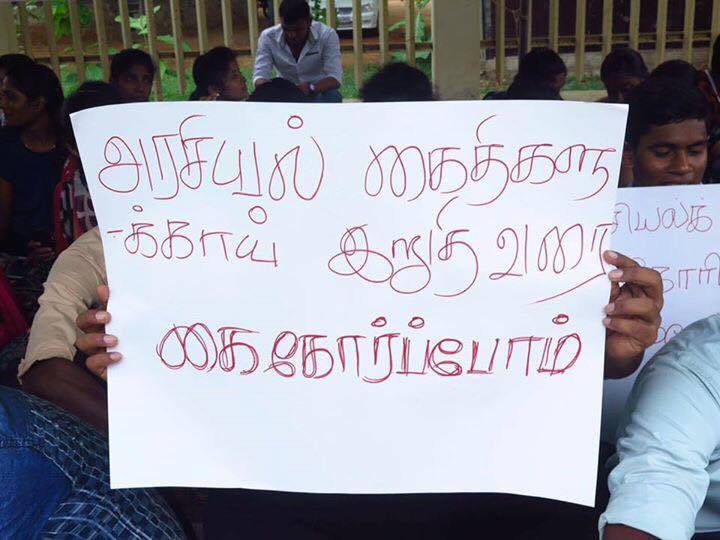 அரசியல் கைதிகளு
-க்காய் இறுதி வரை
கைகோர்ப்போம்
சியல்க்
கோரி